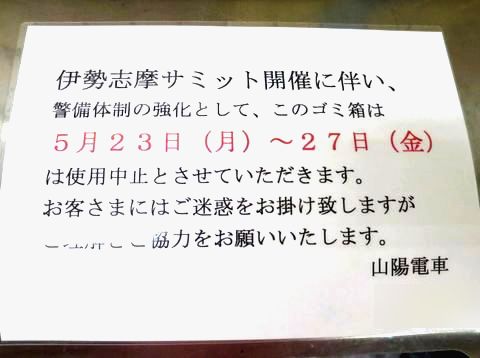 伊勢志摩サミット開催に伴い、
警備体制の強化として、このゴミ箱は
５月２３日（月）～２７日（金）
は使用中止とさせていただきます。
お客さまにはご迷惑をお掛け致しますが
ご理解とご協力をお願いいたします。
山陽電車